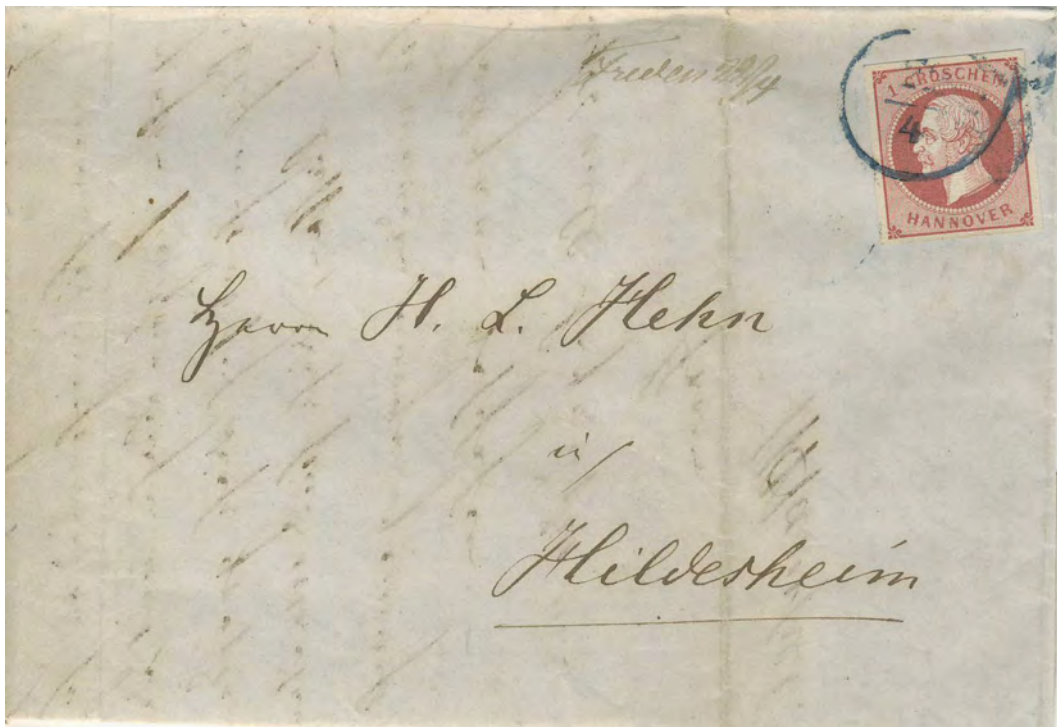 Freden 28/4
1 GROSCHEN
4
HANNOVER
Herrn H. L. Hehn
in
Hildesheim